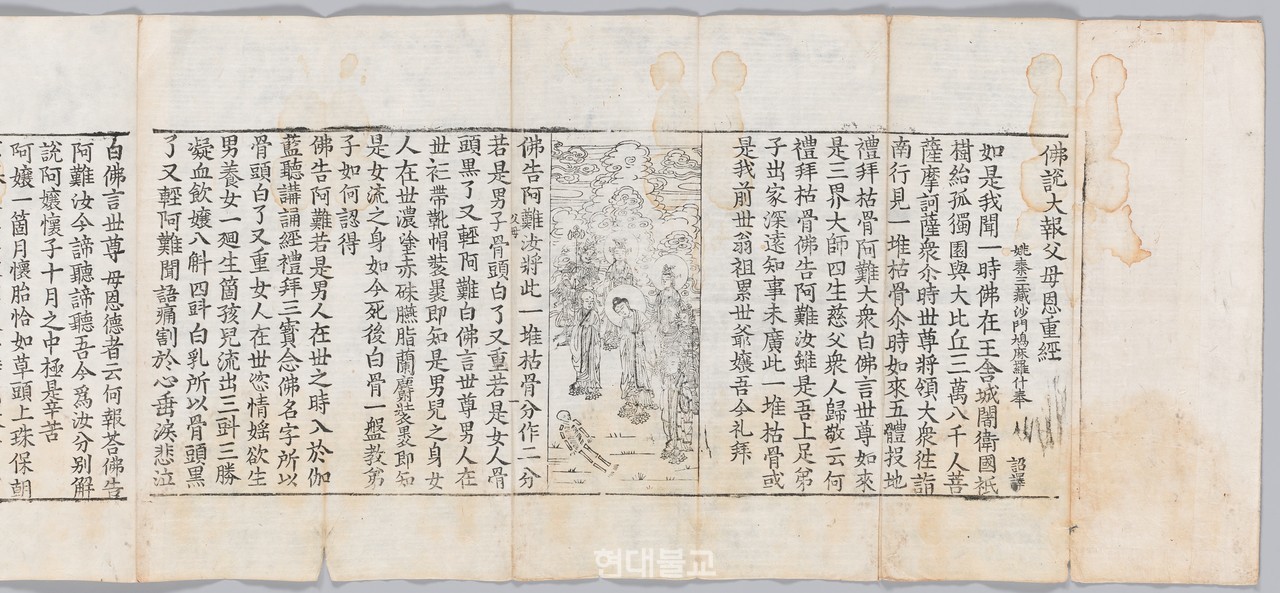 佛說大報父母恩重經
姚秦三藏沙門鳩摩羅什奉 詔譯
如是我聞一時佛在王舍城闍衛國祇
樹給孤獨園與大比丘三萬八千人菩
薩摩訶薩衆尒時世尊將領大衆徃詣
南行見一堆枯骨尒時如來五體投地
禮拜枯骨阿難大衆白佛言世尊如來
是三界大師四生慈父衆人歸敬云何
禮拜枯骨佛告阿難汝雖是吾上足弟
子出家深遠知事未廣此一堆枯骨或
是我前世翁祖累世爺孃吾今礼拜
佛告阿難汝將此一堆枯骨分作二分
若是男子骨頭白了又重若是女人骨
頭黑了又輕阿難白佛言世尊男人在
世衫帶靴帽裝裹即知是男兒之身女
人在世濃塗赤硃臙脂蘭麝裝裹即知
是女流之身如今死後白骨一盤教弟
子如何認得
佛告阿難若是男人在世之時入於伽
藍聽講誦經禮拜三寶念佛名字所以
骨頭白了又重女人在世恣情婬欲生
男養女一廻生箇孩兒流出三㪷三勝
凝血飲孃八斛四㪷白乳所以骨頭黑
了又輕阿難聞語痛割於心垂淚悲泣
白佛言世尊母恩德者云何報荅佛告
阿難汝今諦聽諦聽吾今爲汝分別解
說阿孃懷子十月之中極是辛苦
阿孃一箇月懷胎恰如草頭上珠保朝
현대불교